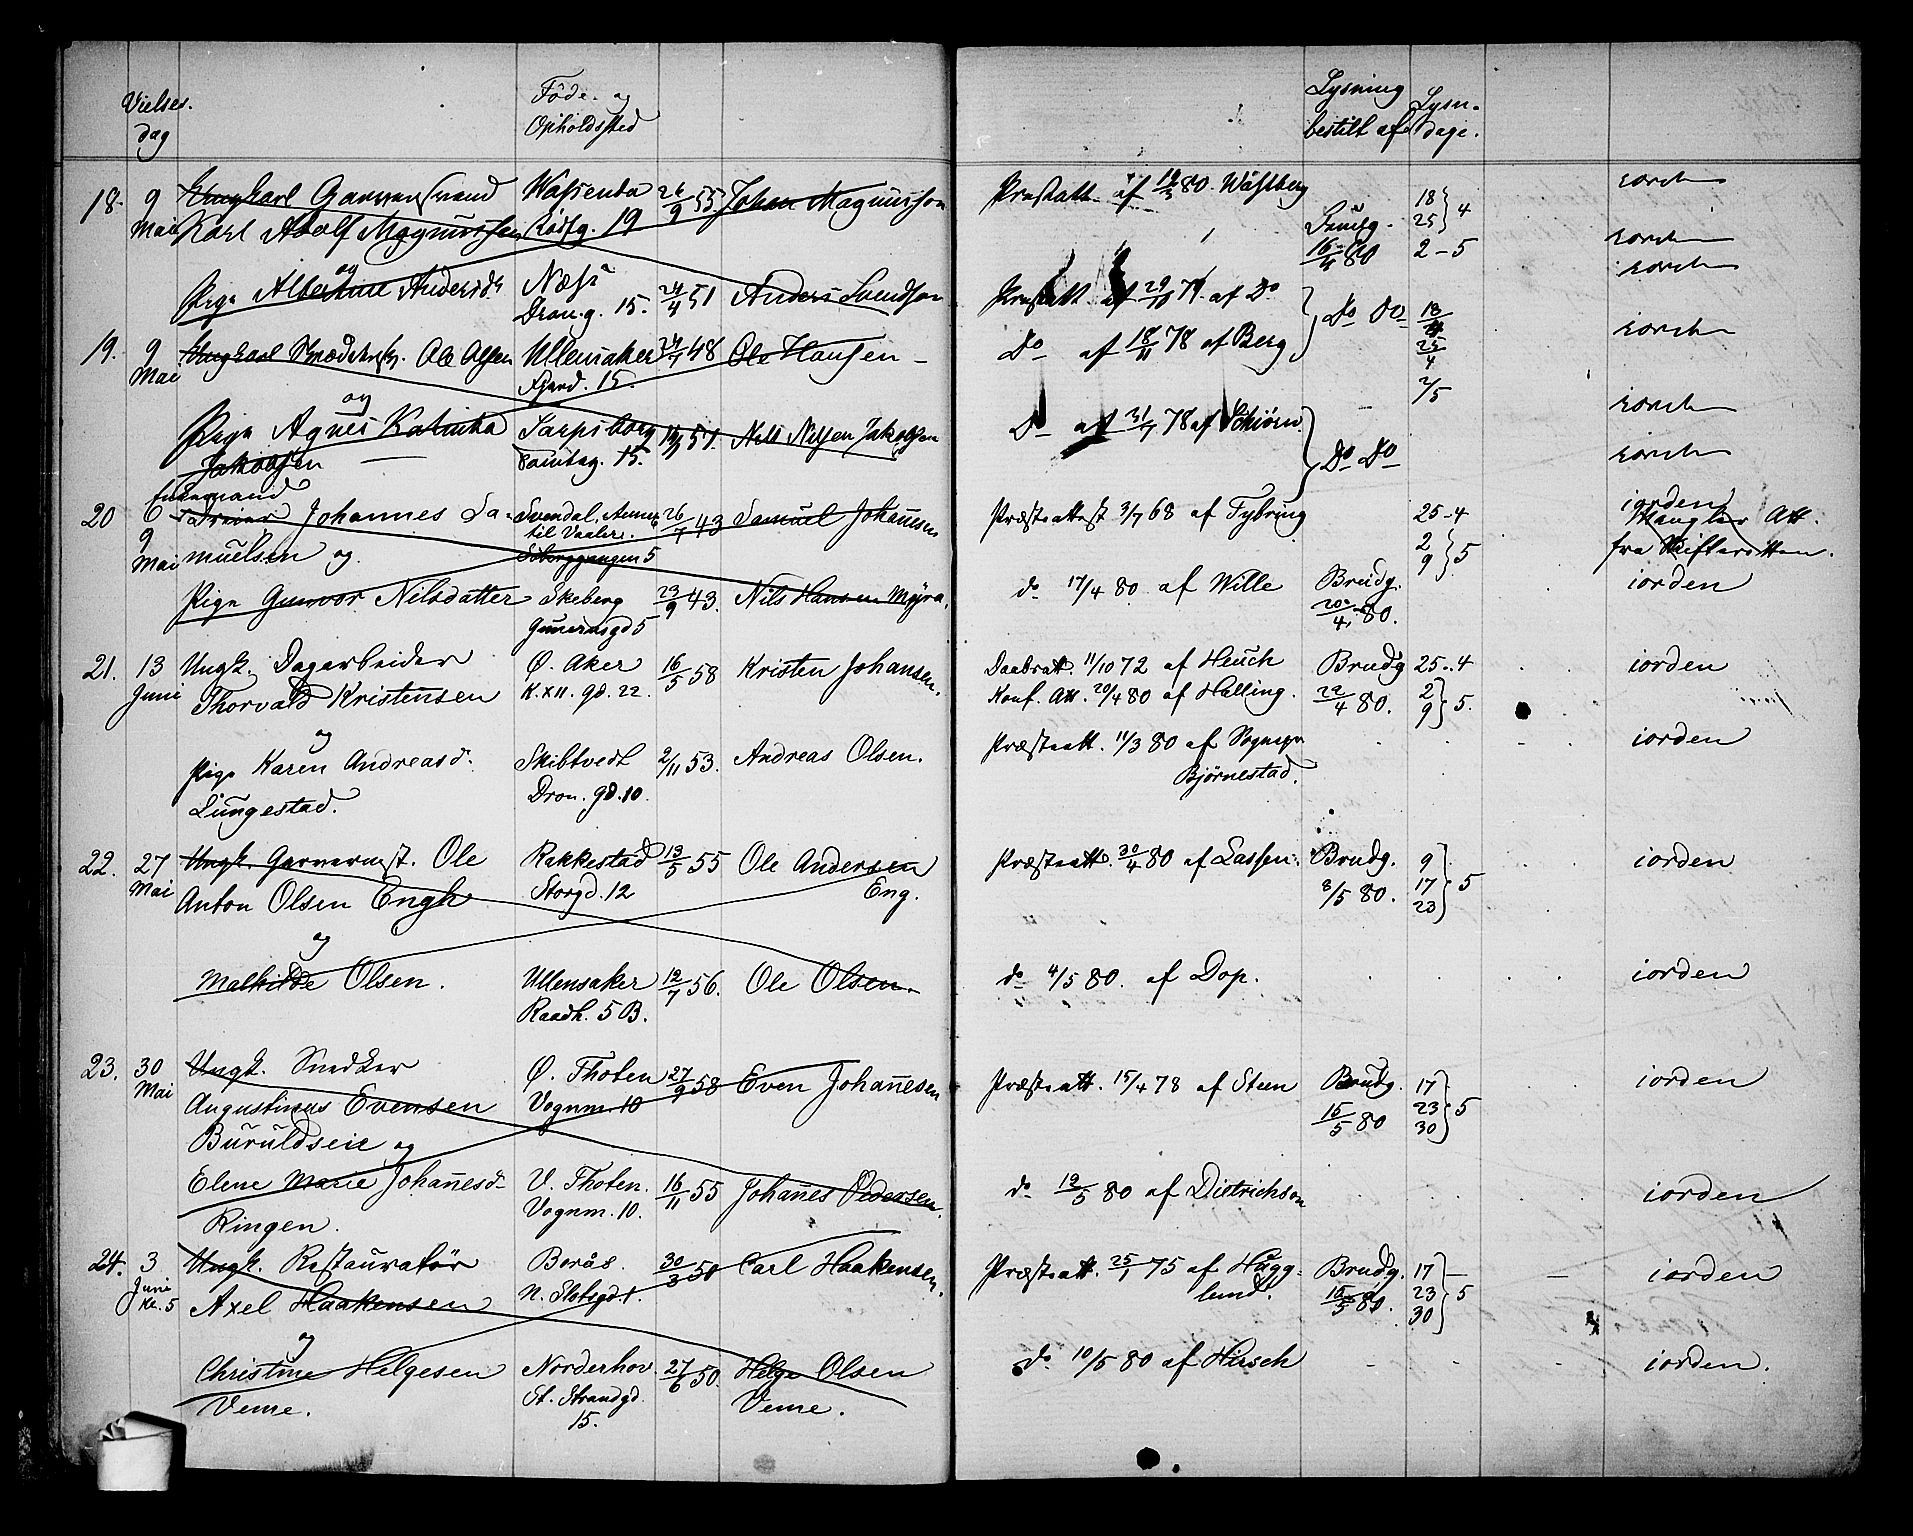 Vielses.
dag
Føde- og
Opholdssted
Lysning
bestilt af
Lysn.
dage.
18. 9 Ungkarl Garversvend Wassenda 26/9 55 Johan Magnusson
Mai Karl Adolf Magnussen 19
og
Pige Albertine Andersd. Næss 24/4 51 Anders Svendson
Dron.g. 15.
19. 9 Ungkarl Ole Olsen Ullensaker 24/7 48 Ole Hansen
Mai 15.
og
Pige Agnes Katinka Sarpsborg 57 Nils Nilsen Jakobsen
Jakobsen Tomteg. 15.
Enkemand
20 6 Johannes Sa- Svendal, Annex 26/7 43 Samuel Johannesen
9 til Vaaler.
Mai muelsen og 5
Pige Gunvor Nilsdatter Skeberg 23/9 43. Nils Hansen Myra.
5
21. 13 Ungk. Dagarbeider Ø. Aker 16/5 58 Kristen Johansen.
Juni Thorvald Kristensen K. XII. gd. 22.
og
Pige Karen Andreasd. Skibtvedt 2/11 53. Andreas Olsen.
Lungestad. Dron. gd. 10.
22. 27 Ungk. Garvermst. Ole Rakkestad 13/5 55 Ole Andersen
Mai Anton Olsen Engh Storgd. 12 Eng.
og
Mathilde Olsen. Ullensaker 12/7 56. Ole Olsen.
Raadh. 5 B.
23. 30 Ungk. Snedker Ø. Thoten 27/9 58 Even Johannesen
Mai Augustinus Evensen Vognm. 10
Buruldseie og
Elene Marie Johannesd. V. Thoten. 16/11 55 Johannes Pedersen.
Ringen. Vognm. 10.
24. 3 Ungk. Restauratør Borås. 30/3 50 Carl Haakensen.
Juni
Kl. 5 Axel Haakensen N. Slotsgd. 1.
og
Christine Helgesen Norderhov 27/6 50. Helge Olsen
Veme. St. Strandgd. Veme.
15.
Prestatt. af 80. Wåstberg 18 } 4 iorden
25
16/4 80 2 - 5 iorden
Prestatt af af Do Do Do iorden
Do af 18/11 78 af Berg 25/4 iorden
2/5
Do af 31/7 78 af iorden
Do Do iorden
Præsteattest 3/7 68 af Tybring 25-4 iorden
2 } 5 Mangler Att.
9 fra Skifteretten.
do 17/4 80 af Wille Brudg. iorden
20/4 80.
Daabsatt. 11/10 72 af Heuch Brudg 25-4 iorden
Konf. Att. 20/4 80 af Halling. 22/4 80. 2 } 5.
9
Præsteatt. 11/3 80 af Sognepr iorden
Bjørnestad.
Præsteatt. 30/4 80 af Lassen. Brudg. 9 iorden
8/5 80. 17 } 5
23
do 4/5 80. af Dop. iorden
Præsteatt. 15/4 78 af Steen Brudg. 17 iorden
15/5 80 23 } 5
30
do 12/5 80 af Dietrichson iorden
Præsteatt. 25/1 75 af Hägg- Brudg. 17 iorden
lund. 80. 23 } 5
30
do 10/5 80 af Hirsch iorden.